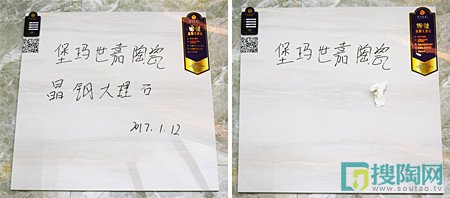 堡玛世嘉陶瓷
晶钢大理石
2017.1.12
堡玛世嘉陶瓷
搜陶网
www.soutao.tv